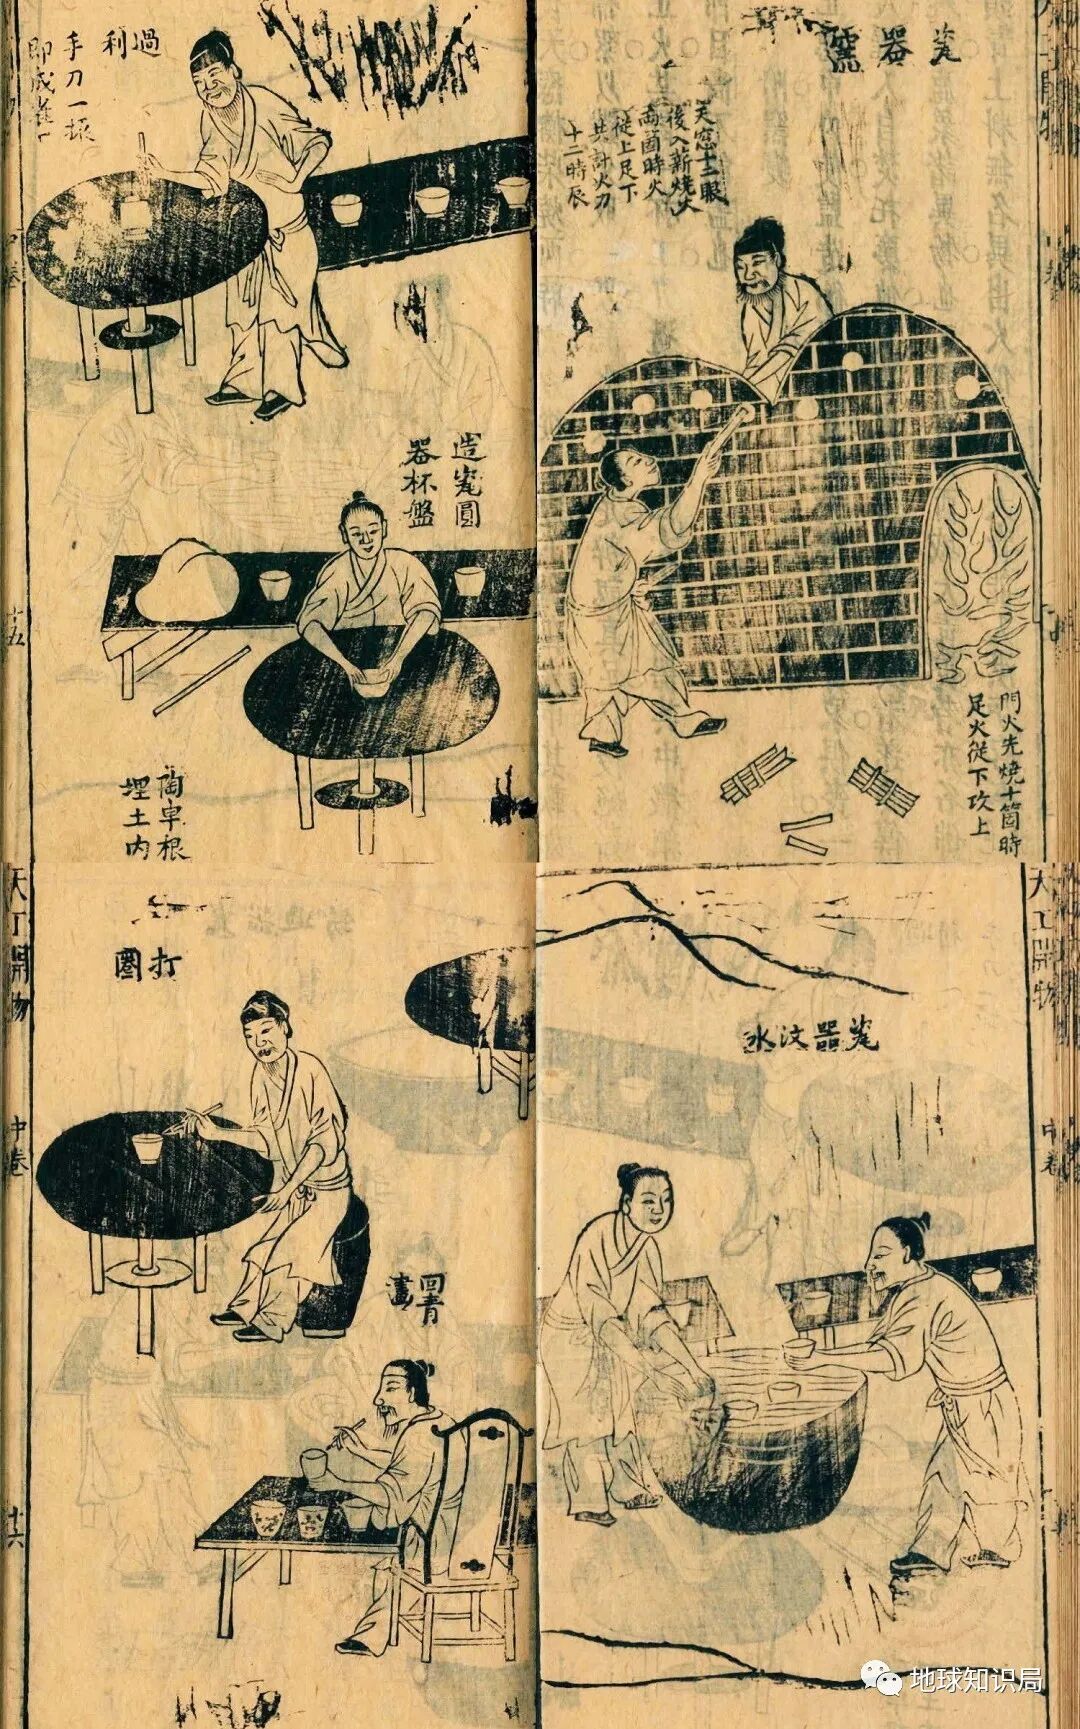 瓷器窯
天窓十二眼
後入薪燒火
兩箇時火
從上足下
共計火刀
十二時辰
門火先燒十箇時
足火從下攻上
過
利
手刀一振
即成雀
造瓷圓
器杯盤
陶車根
埋土內
中卷
十五
天工開物
中卷
瓷器汶水
打
圈
回青
畫
天工開物
中卷
十六
地球知识局